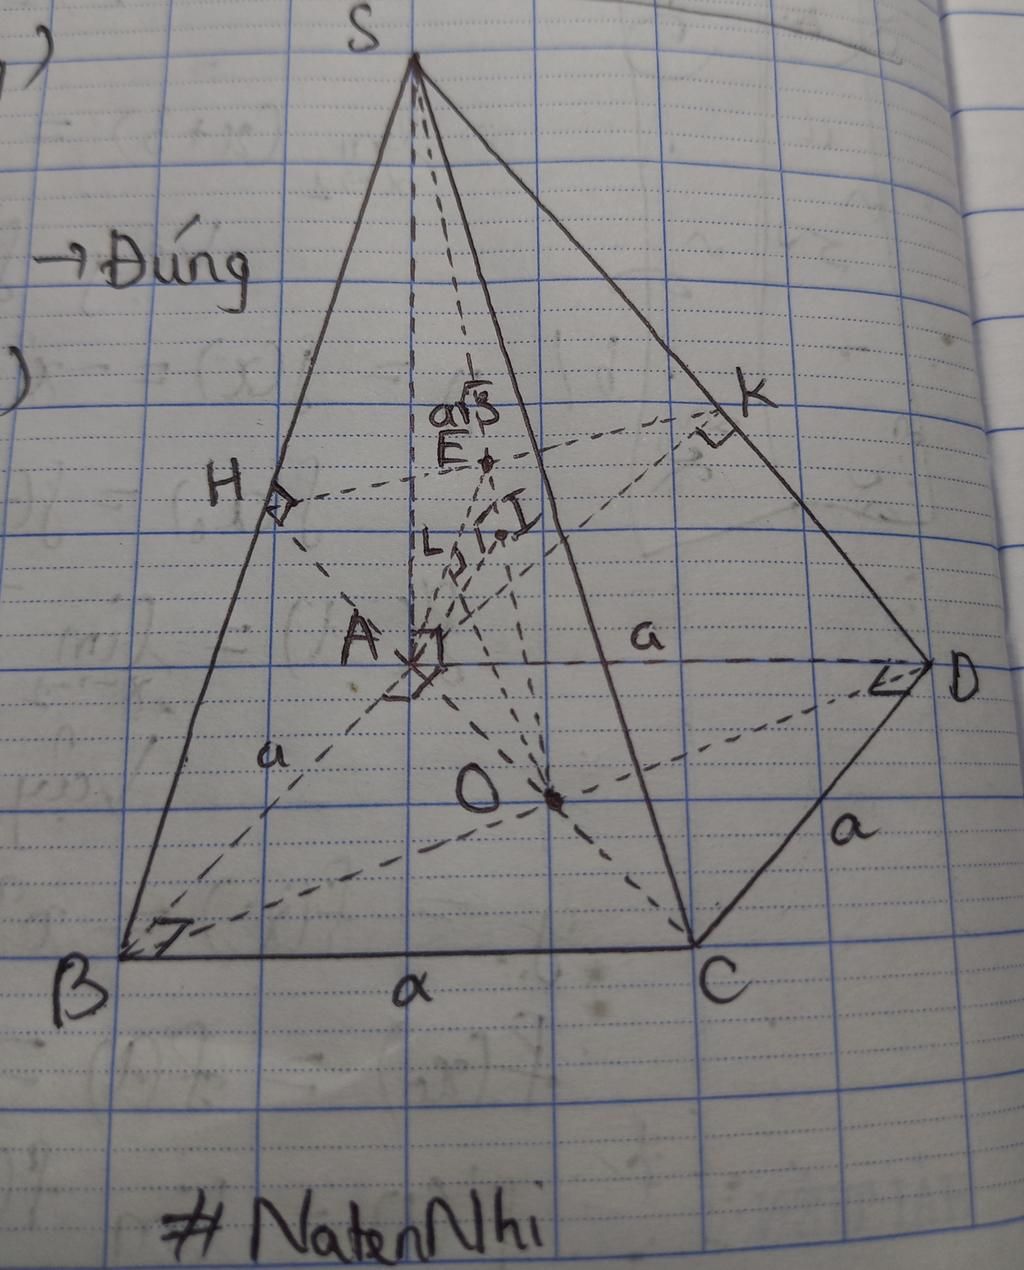 )
S
→ Đúng
)
a√3
K
E
H
I
L
A
a
D
a
O
a
B
a
C
# NatenNhi